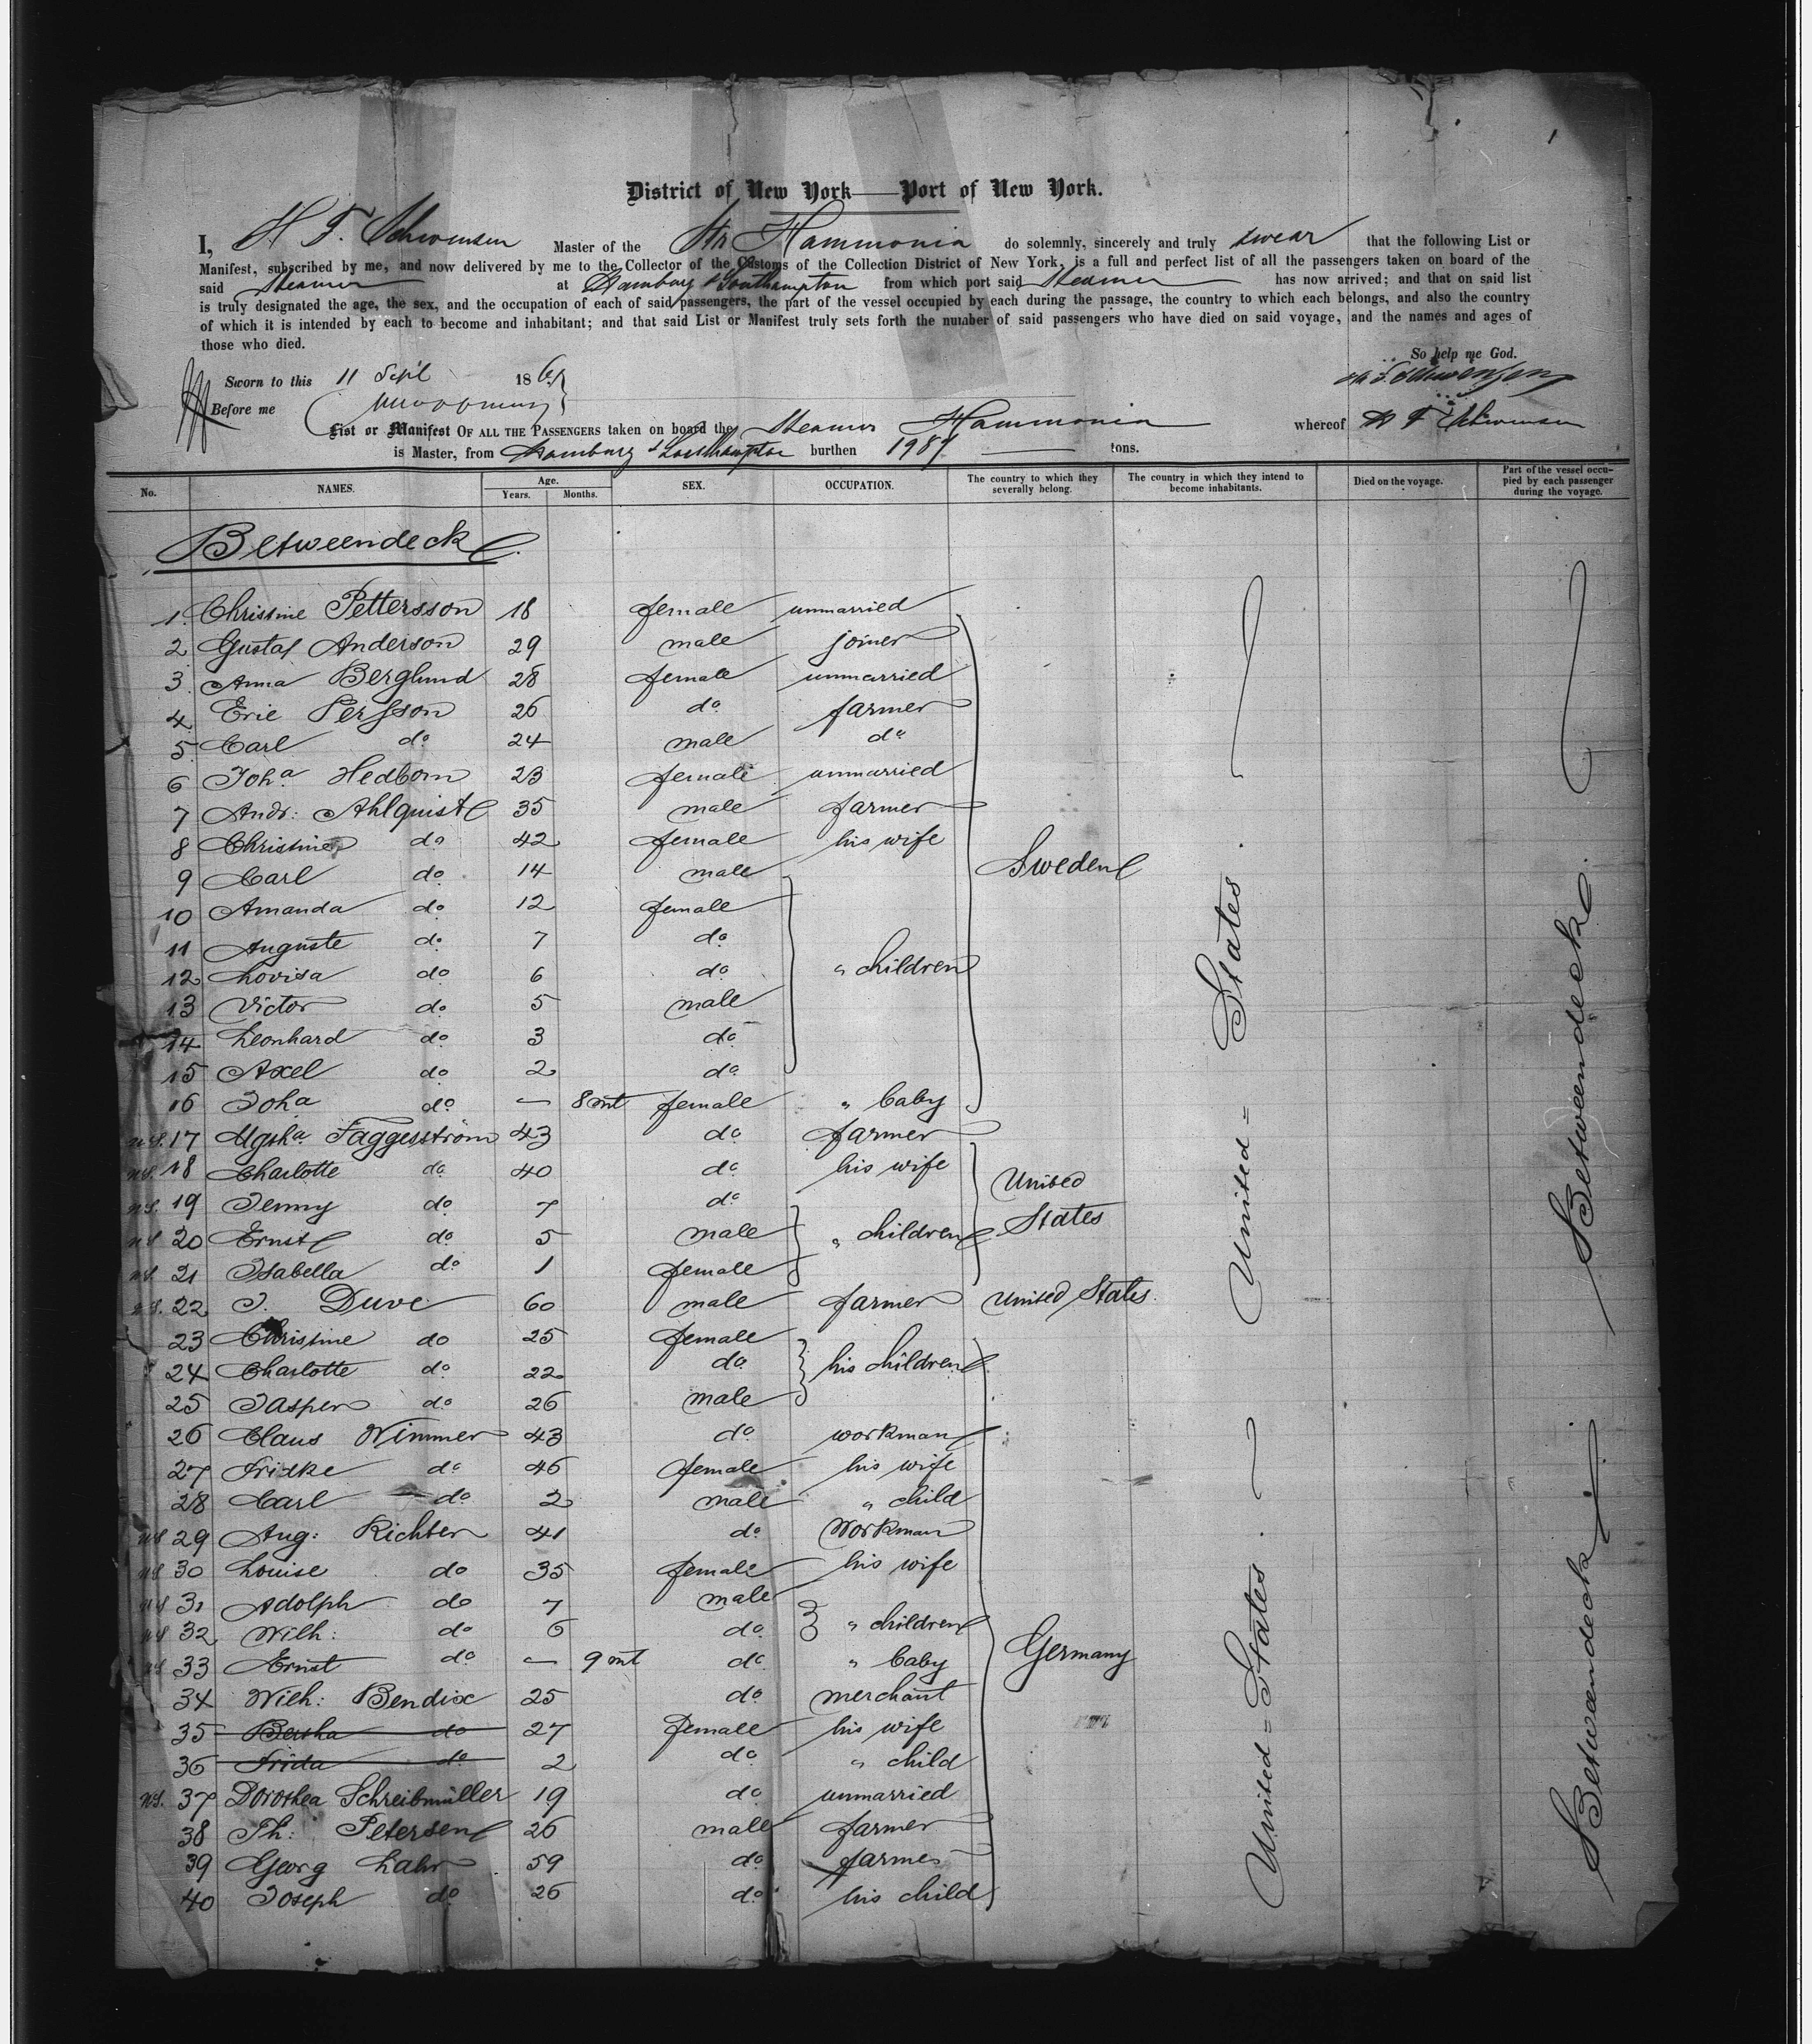 1
District of New York—Port of New York.
I, H. F. Schwensen Master of the Str Hammonia do solemnly, sincerely and truly swear that the following List or
Manifest, subscribed by me, and now delivered by me to the Collector of the Customs of the Collection District of New York, is a full and perfect list of all the passengers taken on board of the
said Steamer at Hamburg & Southampton from which port said Steamer has now arrived; and that on said list
is truly designated the age, the sex, and the occupation of each of said passengers, the part of the vessel occupied by each during the passage, the country to which each belongs, and also the country
of which it is intended by each to become and inhabitant; and that said List or Manifest truly sets forth the number of said passengers who have died on said voyage, and the names and ages of
those who died.
So help me God.
Sworn to this 11 Sept 186
H. F. Schwensen
Before me
List or Manifest OF ALL THE PASSENGERS taken on board the Steamer Hammonia whereof H F Schwensen
is Master, from Hamburg & Southampton burthen 1987 tons.
No. NAMES. Age. Years. Months. SEX. OCCUPATION. The country to which they severally belong. The country in which they intend to become inhabitants. Died on the voyage. Part of the vessel occupied by each passenger during the voyage.
Betweendeck
1. Christine Pettersson 18 female unmarried
2 Gustaf Anderson 29 male joiner
3. Anna Berglund 28 female unmarried
4 Eric Persson 26 do farmer
5 Carl do 24 male do
6 Joha Hedbom 23 female unmarried
7 Andr: Ahlquist 35 male farmer
8 Christine do 42 female his wife
Sweden
9 Carl do 14 male
10 Amanda do 12 female
11 Auguste do 7 do
12 Lovisa do 6 do " children
13 Victor do 5 male
14 Leonhard do 3 do
15 Axel do 2 do
16 Joha do — 8 mt female " baby
U.S. 17 Faggesström 43 do farmer
U.S. 18 Charlotte do 40 do his wife
United States
U.S. 19 Jenny do 7 do
U.S. 20 Ernst do 5 male " children
U.S. 21 Isabella do 1 female
U.S. 22 J. Duve 60 male farmer United States.
23 Christine do 25 female
24 Charlotte do 22 do his children
25 Jasper do 26 male
26 Claus Wimmer 43 do workman
27 Fridke do 46 female his wife
28 Carl do 2 male " child
U.S. 29 Aug: Richter 41 do Workman
U.S. 30 Louise do 35 female his wife
U.S. 31 Adolph do 7 male
U.S. 32 Wilh: do 6 do " children
U.S. 33 Ernst do — 9 mt do " baby
Germany
34 Wilh: Bendix 25 do merchant
35 Bertha do 27 female his wife
36 Frida do 2 do " child
U.S. 37 Dorothea Schreibmüller 19 do unmarried
38 Th: Petersen 26 male farmer
39 Georg Lahr 59 do farmer
40 Joseph do 26 do his child
United = States
United = States
Betweendeck
Betweendeck